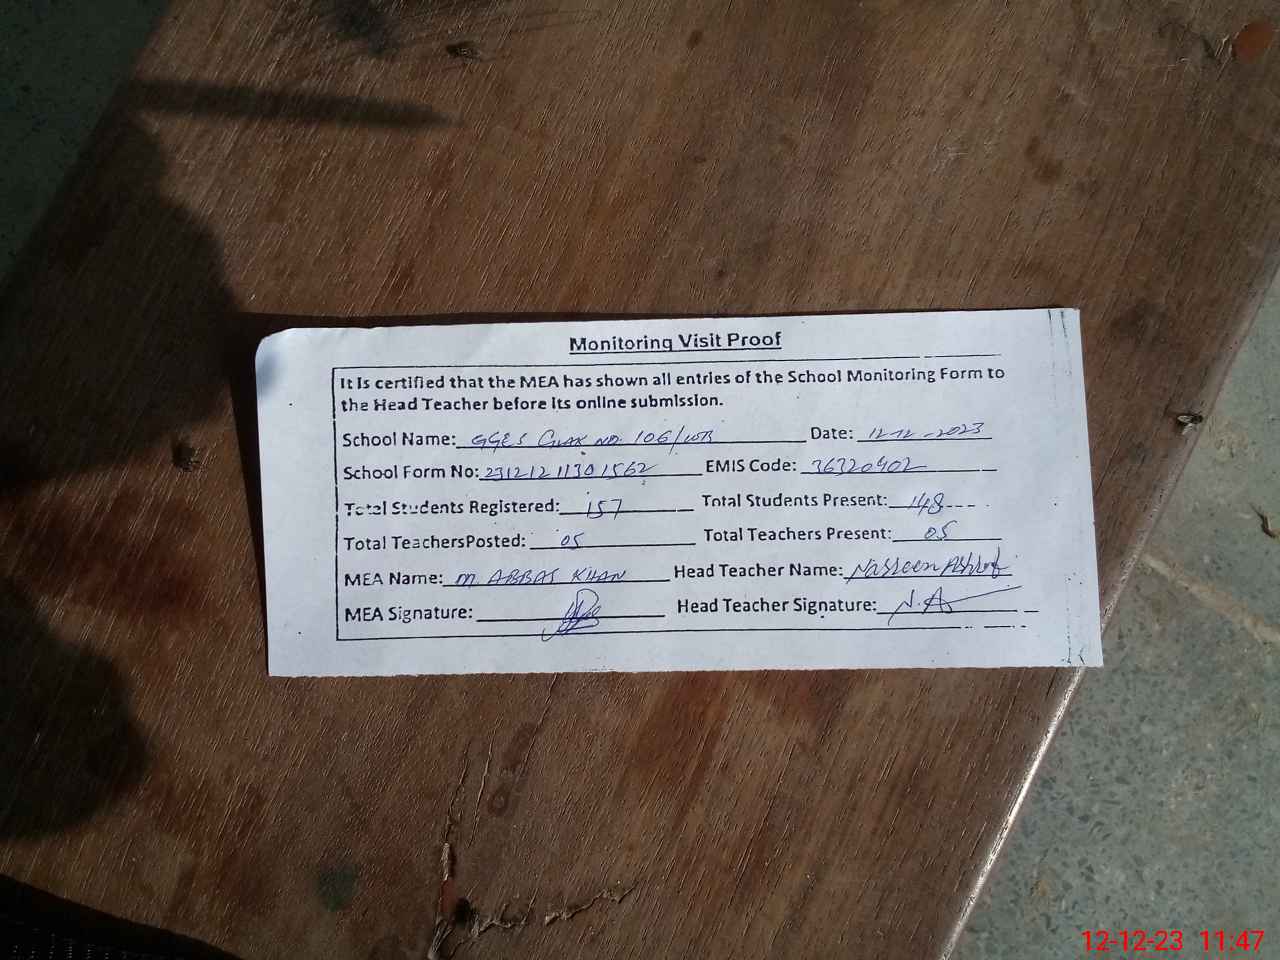 Monitoring Visit Proof
It is certified that the MEA has shown all entries of the School Monitoring Form to
the Head Teacher before its online submission.
School Name: GGES Chak no. 106/10R Date: 12-12-2023
School Form No: 23121211301562 EMIS Code: 36320402
Total Students Registered: 157 Total Students Present: 148
Total TeachersPosted: 05 Total Teachers Present: 05
MEA Name: M ABBAS KHAN Head Teacher Name: Nasreen Ashraf
MEA Signature: Head Teacher Signature: N.A
12-12-23 11:47